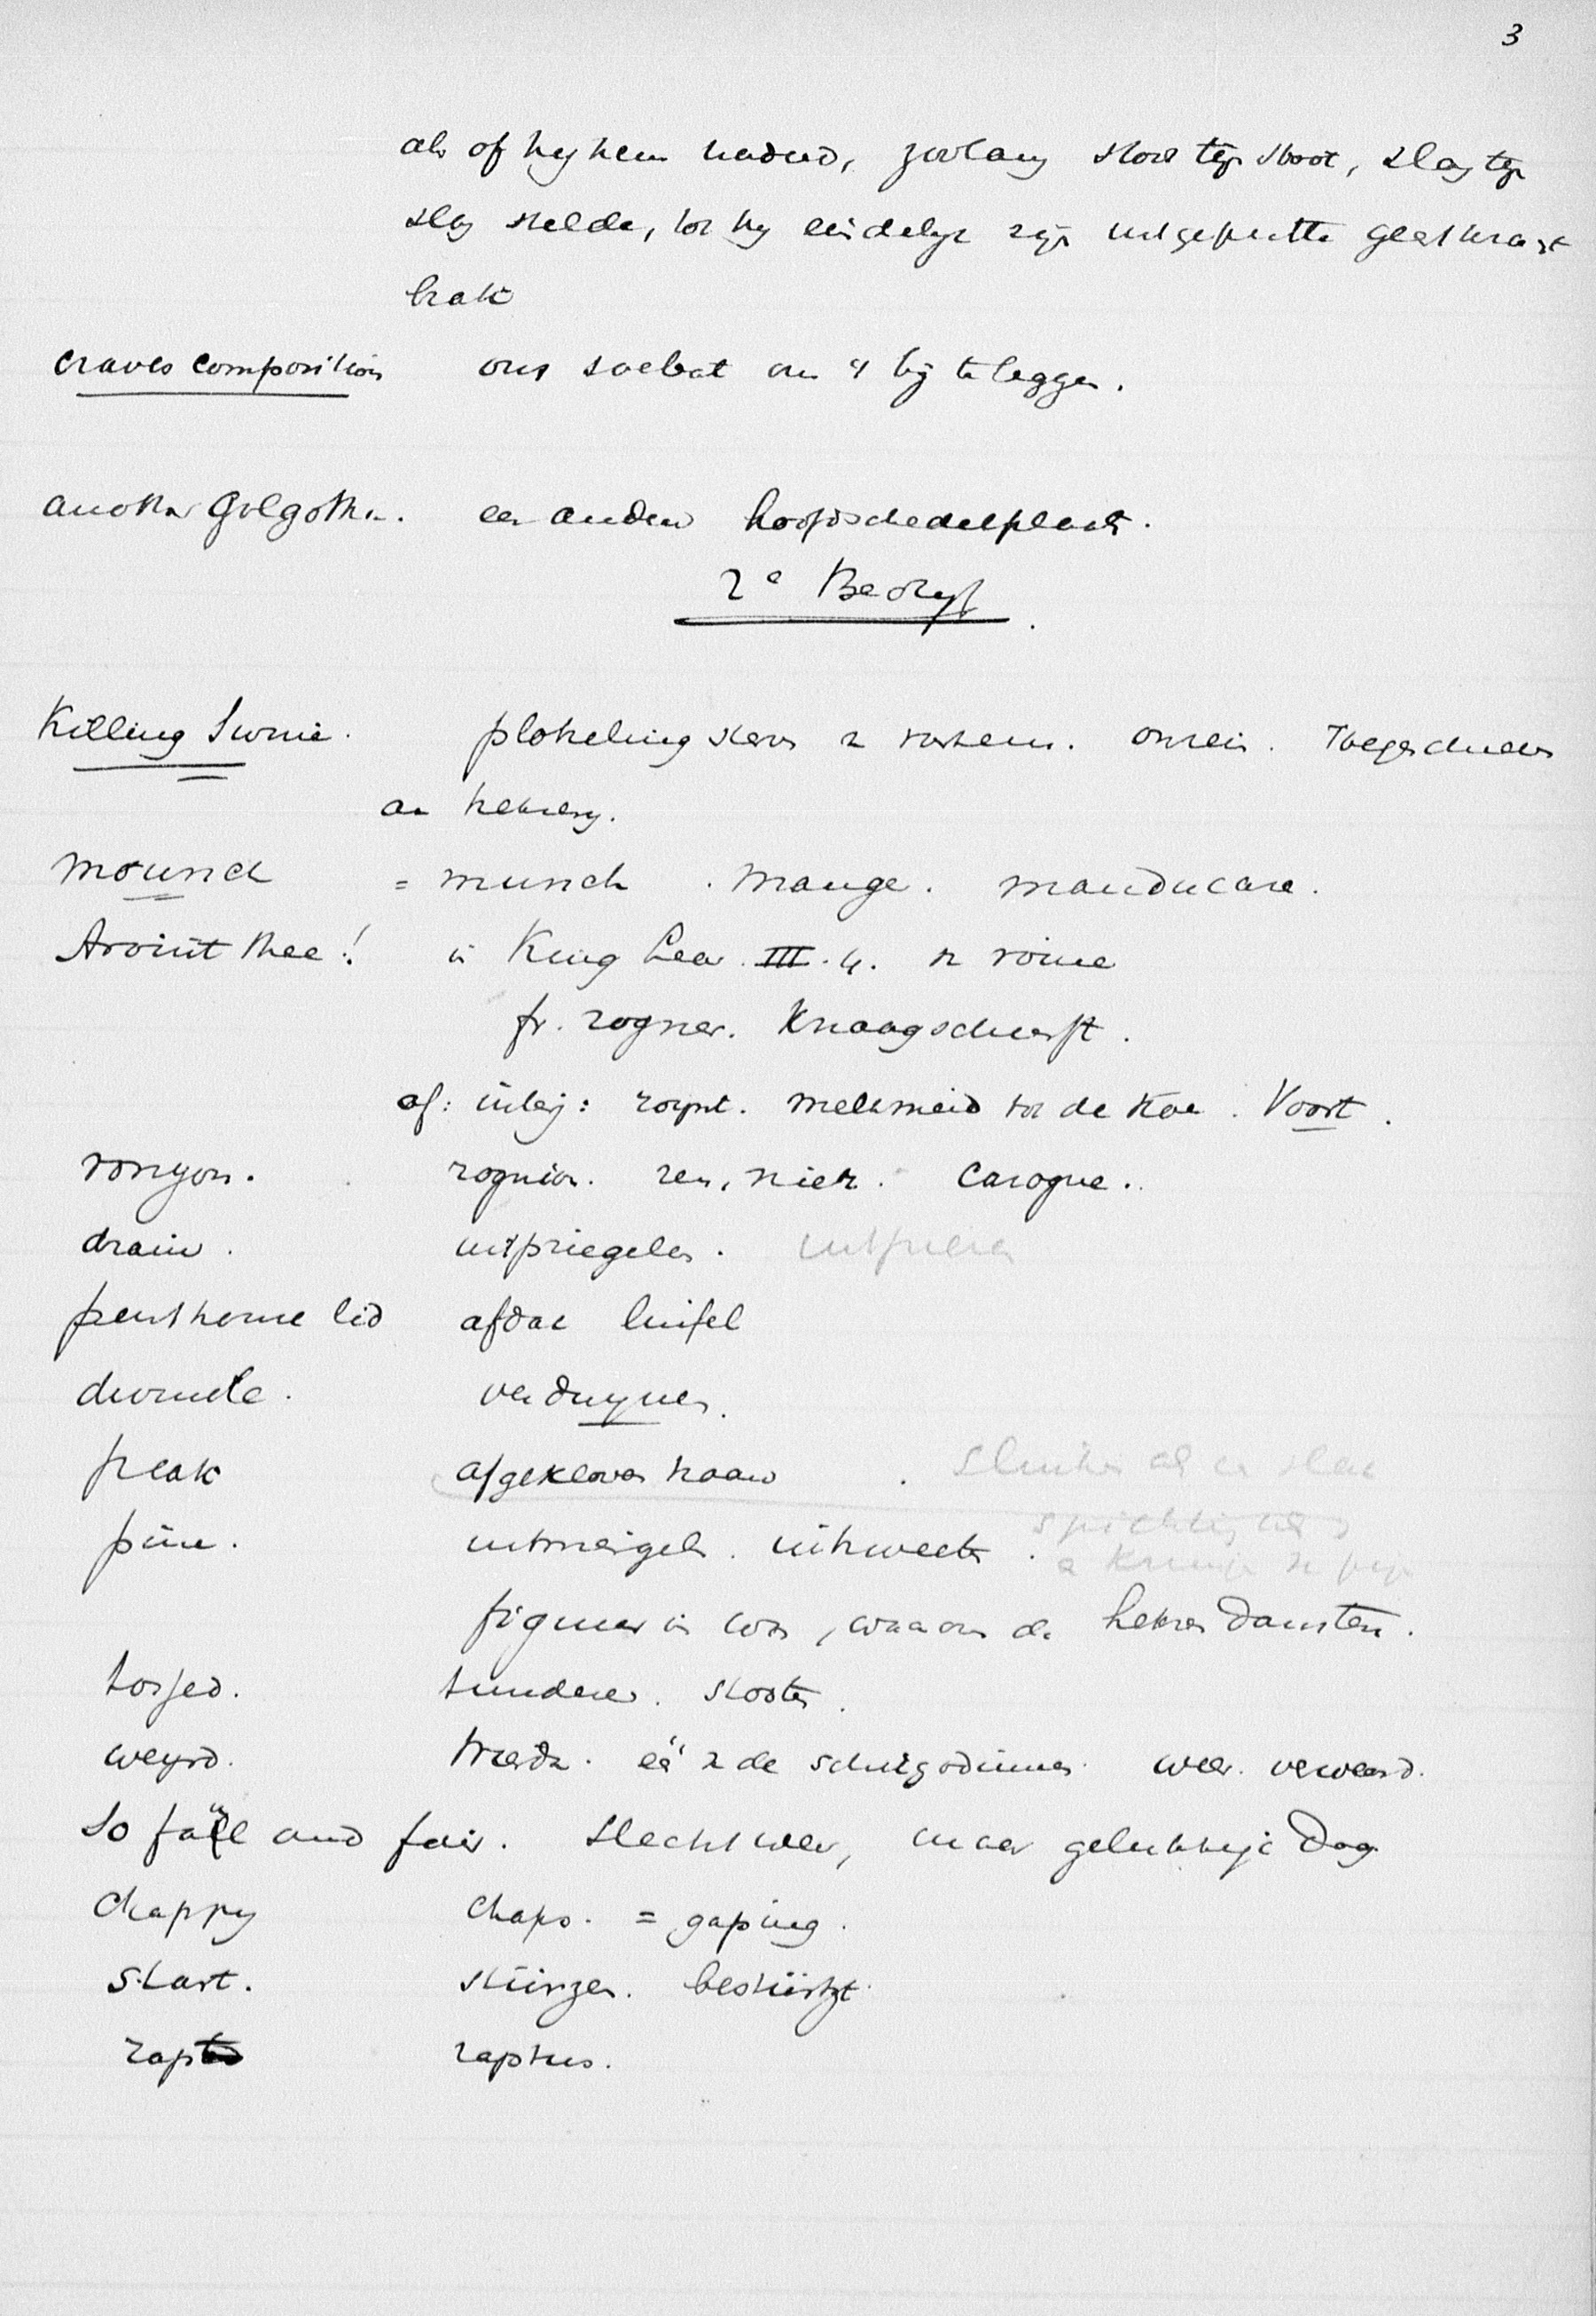 3
als of hij hem nadeed, zoolang stoot tegen stoot, slag tegen
slag stelde, tot hij eindelijk zijn uitgeputte geestkracht
brak
craves composition ons soebat om 't bij te leggen.
another Golgotha. een andere hoofdschedelplaats.
2e Bedrijf.
Killing Swine. plotseling sterven v varkens. onrein. Toegeschreven
aan hekserij.
mounch = munch. mange. manducare.
Aroint thee! in King Lear. III. 4.
fr. rogner. Knaagschurft.
of: roynt. melkmeid tot de koe. Voort.
ronyon. rognon. ren, nier. Carogne.
drain. uitpriegelen.
penthouse lid afdak luifel
dwindle. verdwynen.
peak afgekloven
pine. uitmergelen.
figuur in was, waarom de heksen dansten.
tossed. stooten.
weyrd. één v de schikgodinnen.
So foul and fair. Slecht weer, maar gelukkige dag
chappy chaps. = gaping.
start. stürzen. bestürzt.
rapt raptus.